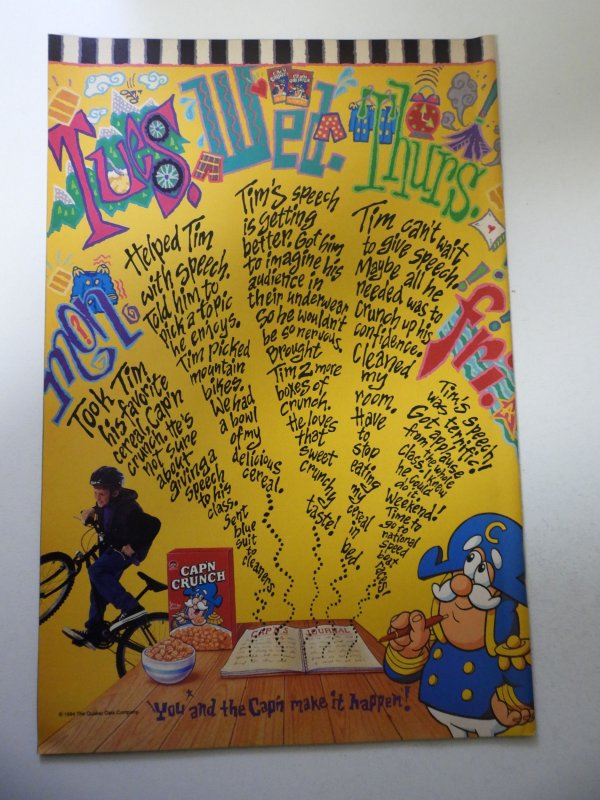 Mon.
Took Tim
his favorite
cereal, Cap'n
Crunch. He's
not sure
about
giving a
speech
to his
class.
Sent
blue
suit
to
cleaners.
Tues.
Helped Tim
with speech.
Told him to
pick a topic
he enjoys.
Tim picked
mountain
bikes.
We had
a bowl
of my
delicious
cereal.
Wed.
Tim's speech
is getting
better. Got him
to imagine his
audience in
their underwear
so he wouldn't
be so nervous.
Brought
Tim 2 more
boxes of
Crunch.
He loves
that
sweet
crunchy
taste!
Thurs.
Tim can't wait
to give speech.
Maybe all he
needed was to
Crunch up his
confidence.
Cleaned
my
room.
Have
to
stop
eating
my
cereal
in
bed.
Fri.
Tim's speech
was terrific!
Got applause
from the whole
class. I knew
he could
do it.
Weekend!
Time to
go to
national
speed
boat
races!
CAP'N
CRUNCH
CAP'N'S JOURNAL
You and the Cap'n make it happen!
© 1994 The Quaker Oats Company